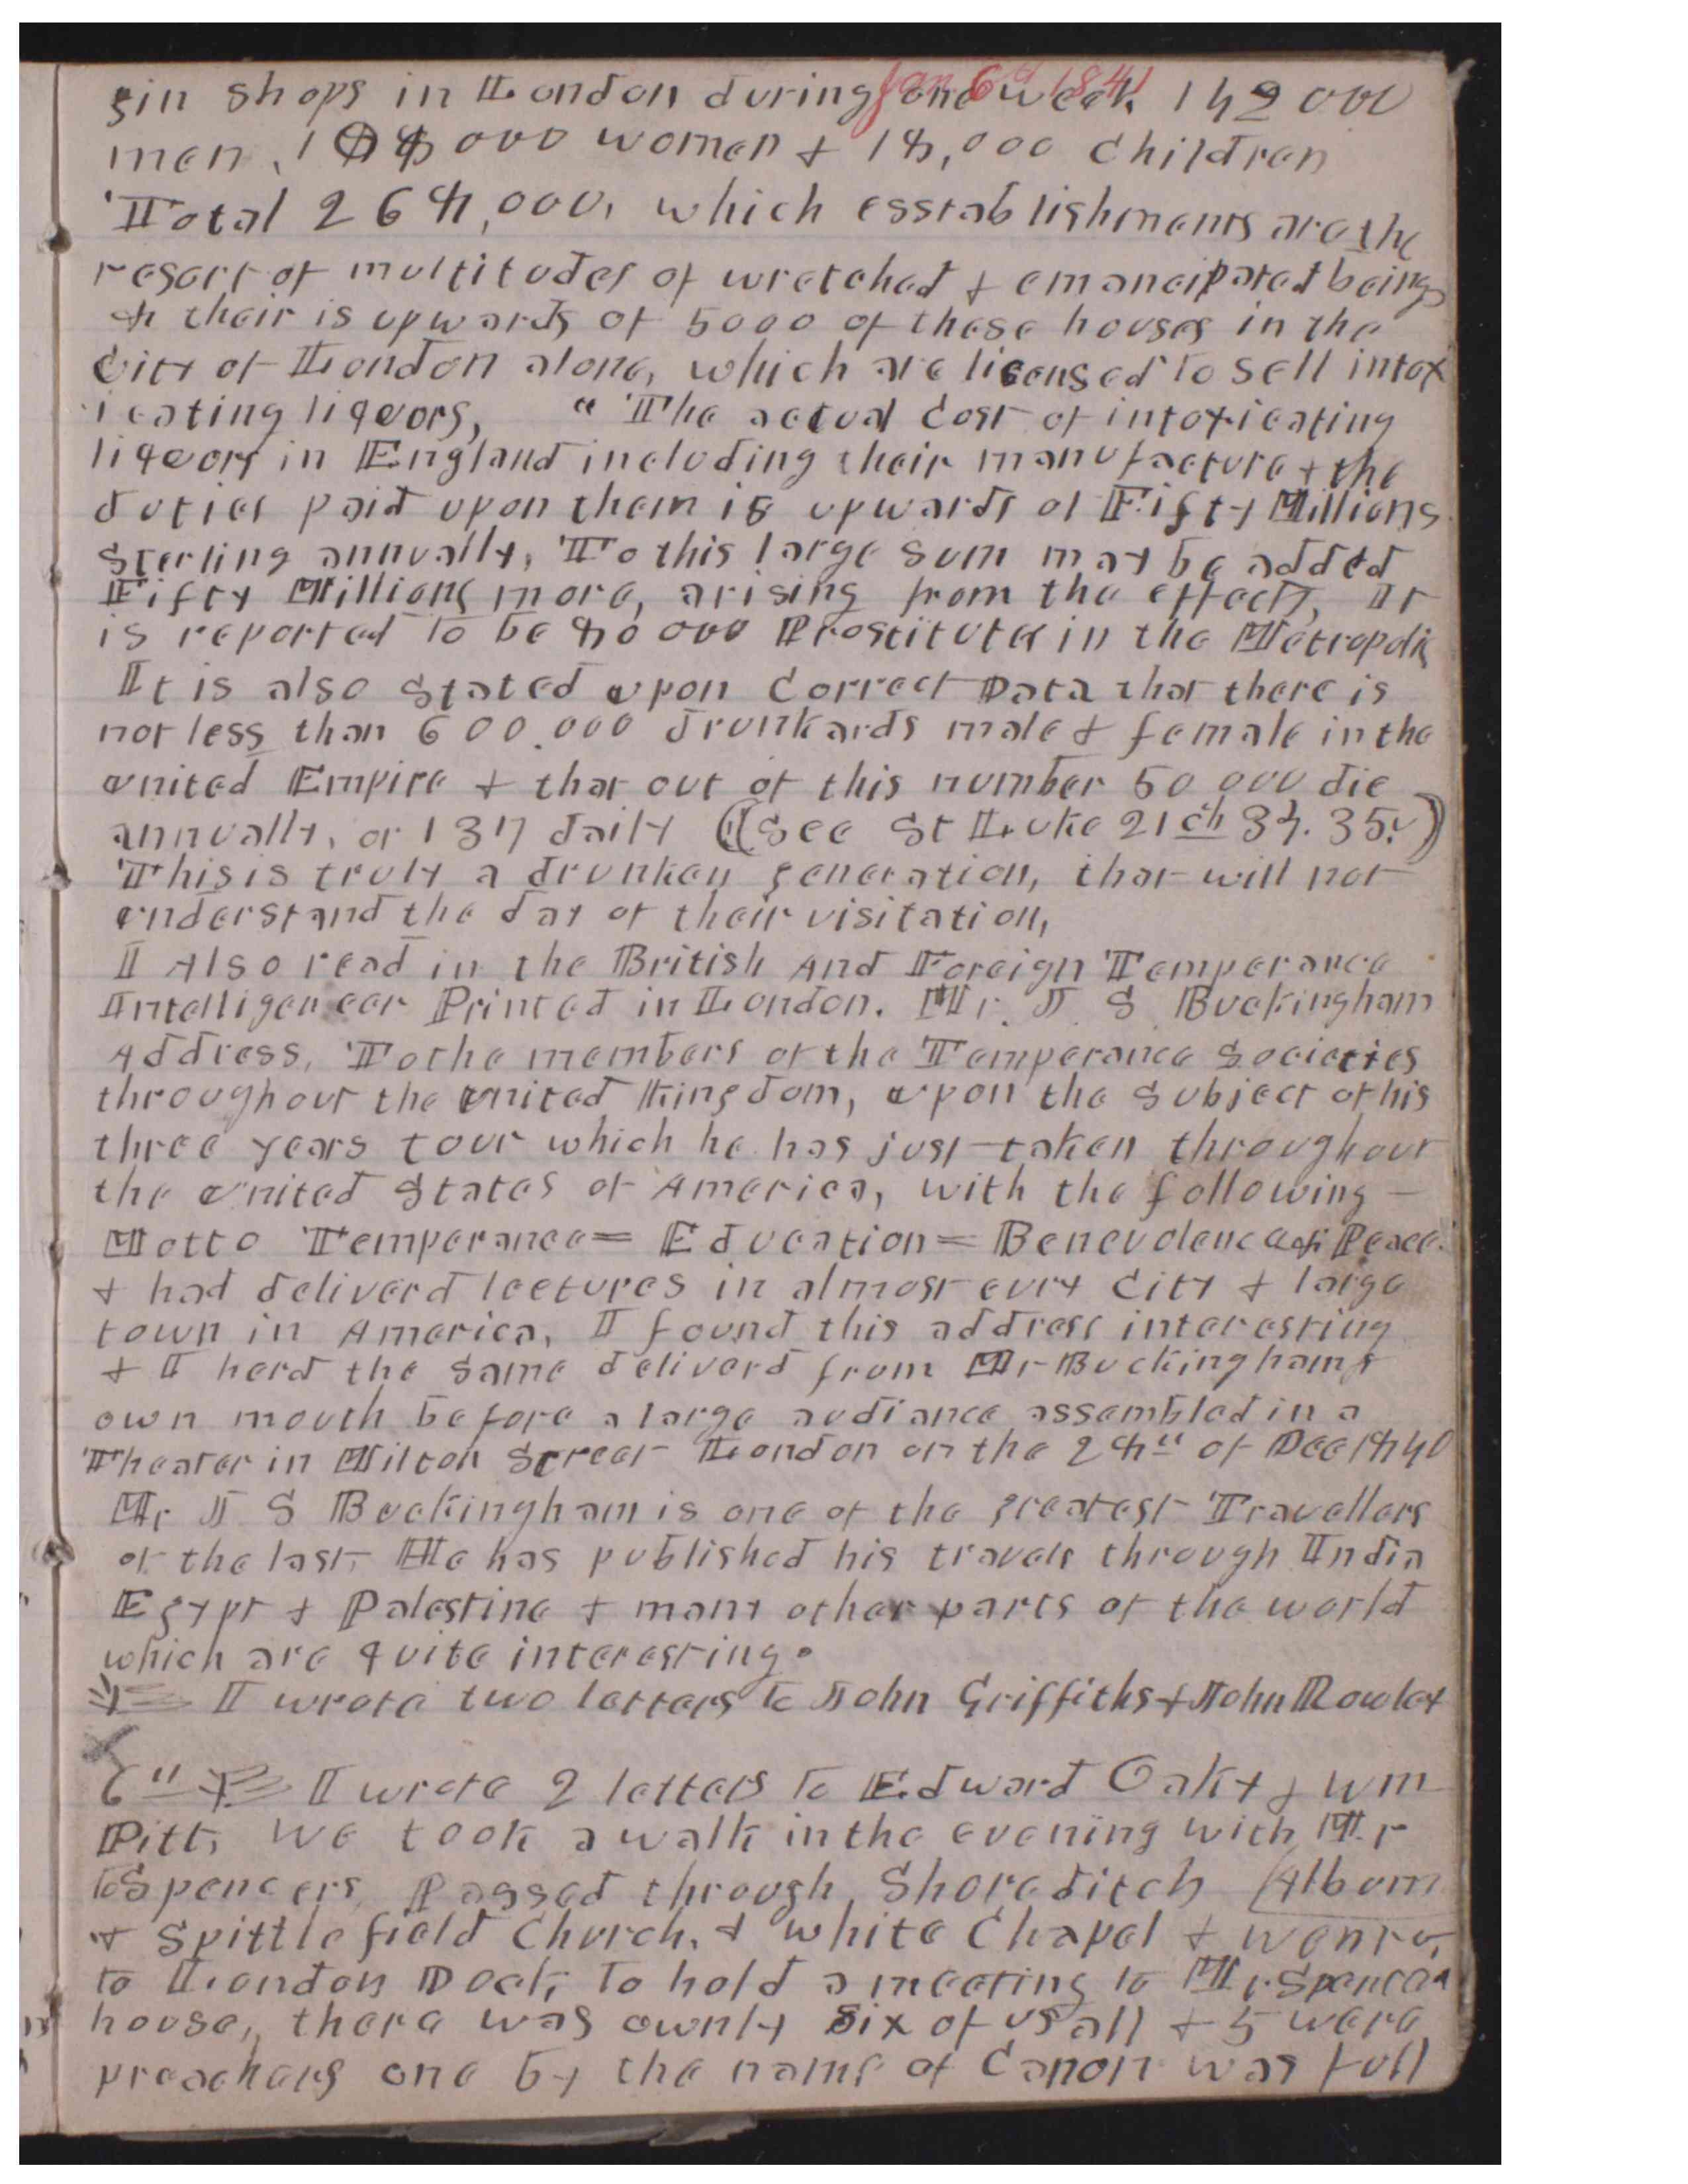 Jan 6th 1841
gin shops in London during one week 142000
men, 108000 women & 18,000 children
Total 268,000, which esstablishments are the
resort of multitudes of wretched & emancipated beings
& their is upwards of 5000 of these houses in the
City of London alone, which are licensed to sell intox
icating liqeors, " The actual Cost of intoxicating
liqeors in England including their manufacture & the
duties paid upon them is upwards of Fifty Millions
Sterling annually, To this large sum may be added
Fifty Millions more, arising from the effects, It
is reported to be 80000 Prostitutes in the Metropolis
It is also stated upon Correct Data that there is
not less than 600.000 drunkards male & female in the
united Empire & that out of this number 50000 die
annually, or 137 daily ((See St Luke 21ch 34. 35.v)
This is truly a drunken generation, that will not
understand the day of their visitation,
I Also read in the British And Foreign Temperance
Intelligencer Printed in London. Mr. J. S. Buckingham
Address, To the members of the Temperance Societies
throughout the united Kingdom, upon the subject of his
three years tour which he has just taken throughout
the united States of America, with the following —
Motto Temperance= Education= Benevolence & Peace.
& had deliverd lectures in almost evry City & large
town in America, I found this address interesting
& I herd the same deliverd from Mr Buckinghams
own mouth before a large audiance assembled in a
Theater in Milton Street London on the 28" of Dec 1840
Mr J S Buckingham is one of the greatest Travellers
of the last, He has published his travels through India
Egypt & Palestine & many other parts of the world
which are quite interesting.
I wrote two letters to John Griffiths & John Rowley
6" I wrote 2 letters to Edward Oaky & Wm
Pitt, We took a walk in the evening with Mr
to Spencers, Passed through, Shoreditch Album
& Spittlefield Church, & white Chapel & went
to London Dock, to hold a meeting to Mr Spencer
house, there was ownly six of us all & 5 were
preachers one by the name of Canon was full